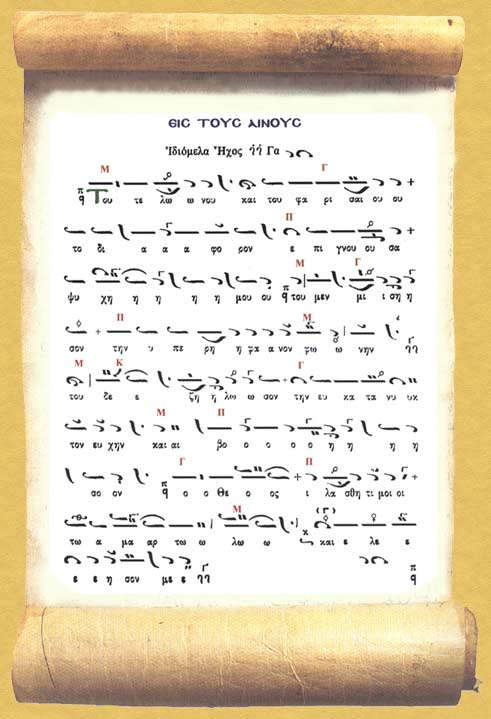 ΕΙΣ ΤΟΥΣ ΑΙΝΟΥΣ
Ἰδιόμελα Ἦχος Γα
Του τε λω ω νου και του φα ρι σαι ου ου
το δι α α α φο ρον ε πι γνου ου σα
ψυ χη η η η η μου ου του μεν μι ι ση η
σον την υ πε ρη η φα α νον φω ω νην
του δε ε ζη η λω ω σον την ευ κα τα νυ υκ
τον ευ χην και αι βο ο ο ο η η η η
σο ον ο ο Θε ο ος ι λα σθη τι μοι οι
τω α μα αρ τω ω λω ω και ε λε ε
ε ε η σον με ε